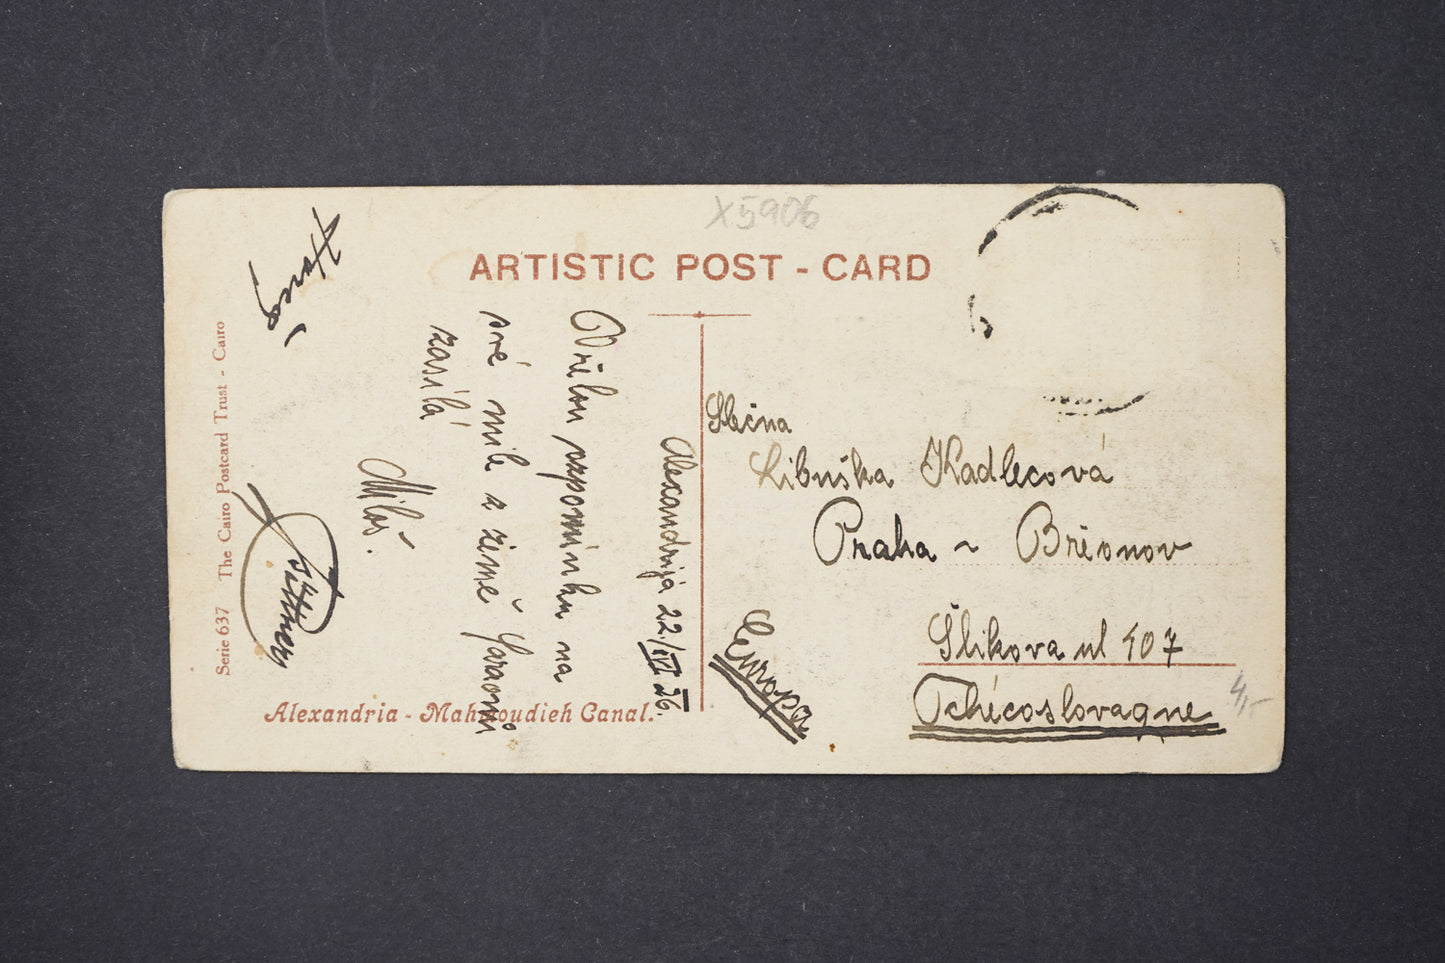 X5906
ARTISTIC POST - CARD
Alexandrija 22./IV 26.
Vřelou vzpomínku na
své milé z země Faraonů
zasílá
Miloš.
Serie 637 The Cairo Postcard Trust - Cairo
Alexandria - Mahmoudieh Canal.
Slečna
Libuška Kadlecová
Praha - Břevnov
Slikova ul 407
Tchécoslovaqne
Europa
4,-